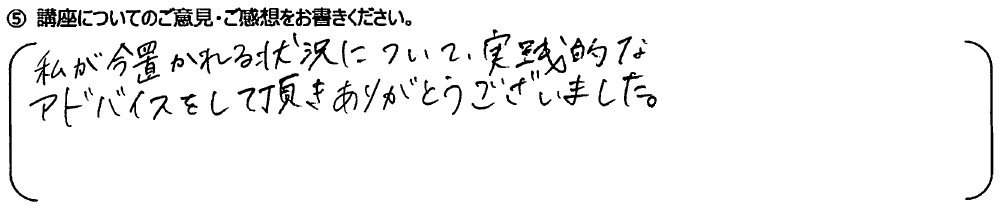 ⑤ 講座についてのご意見・ご感想をお書きください。
私が今置かれる状況について、実践的な
アドバイスをして頂きありがとうございました。